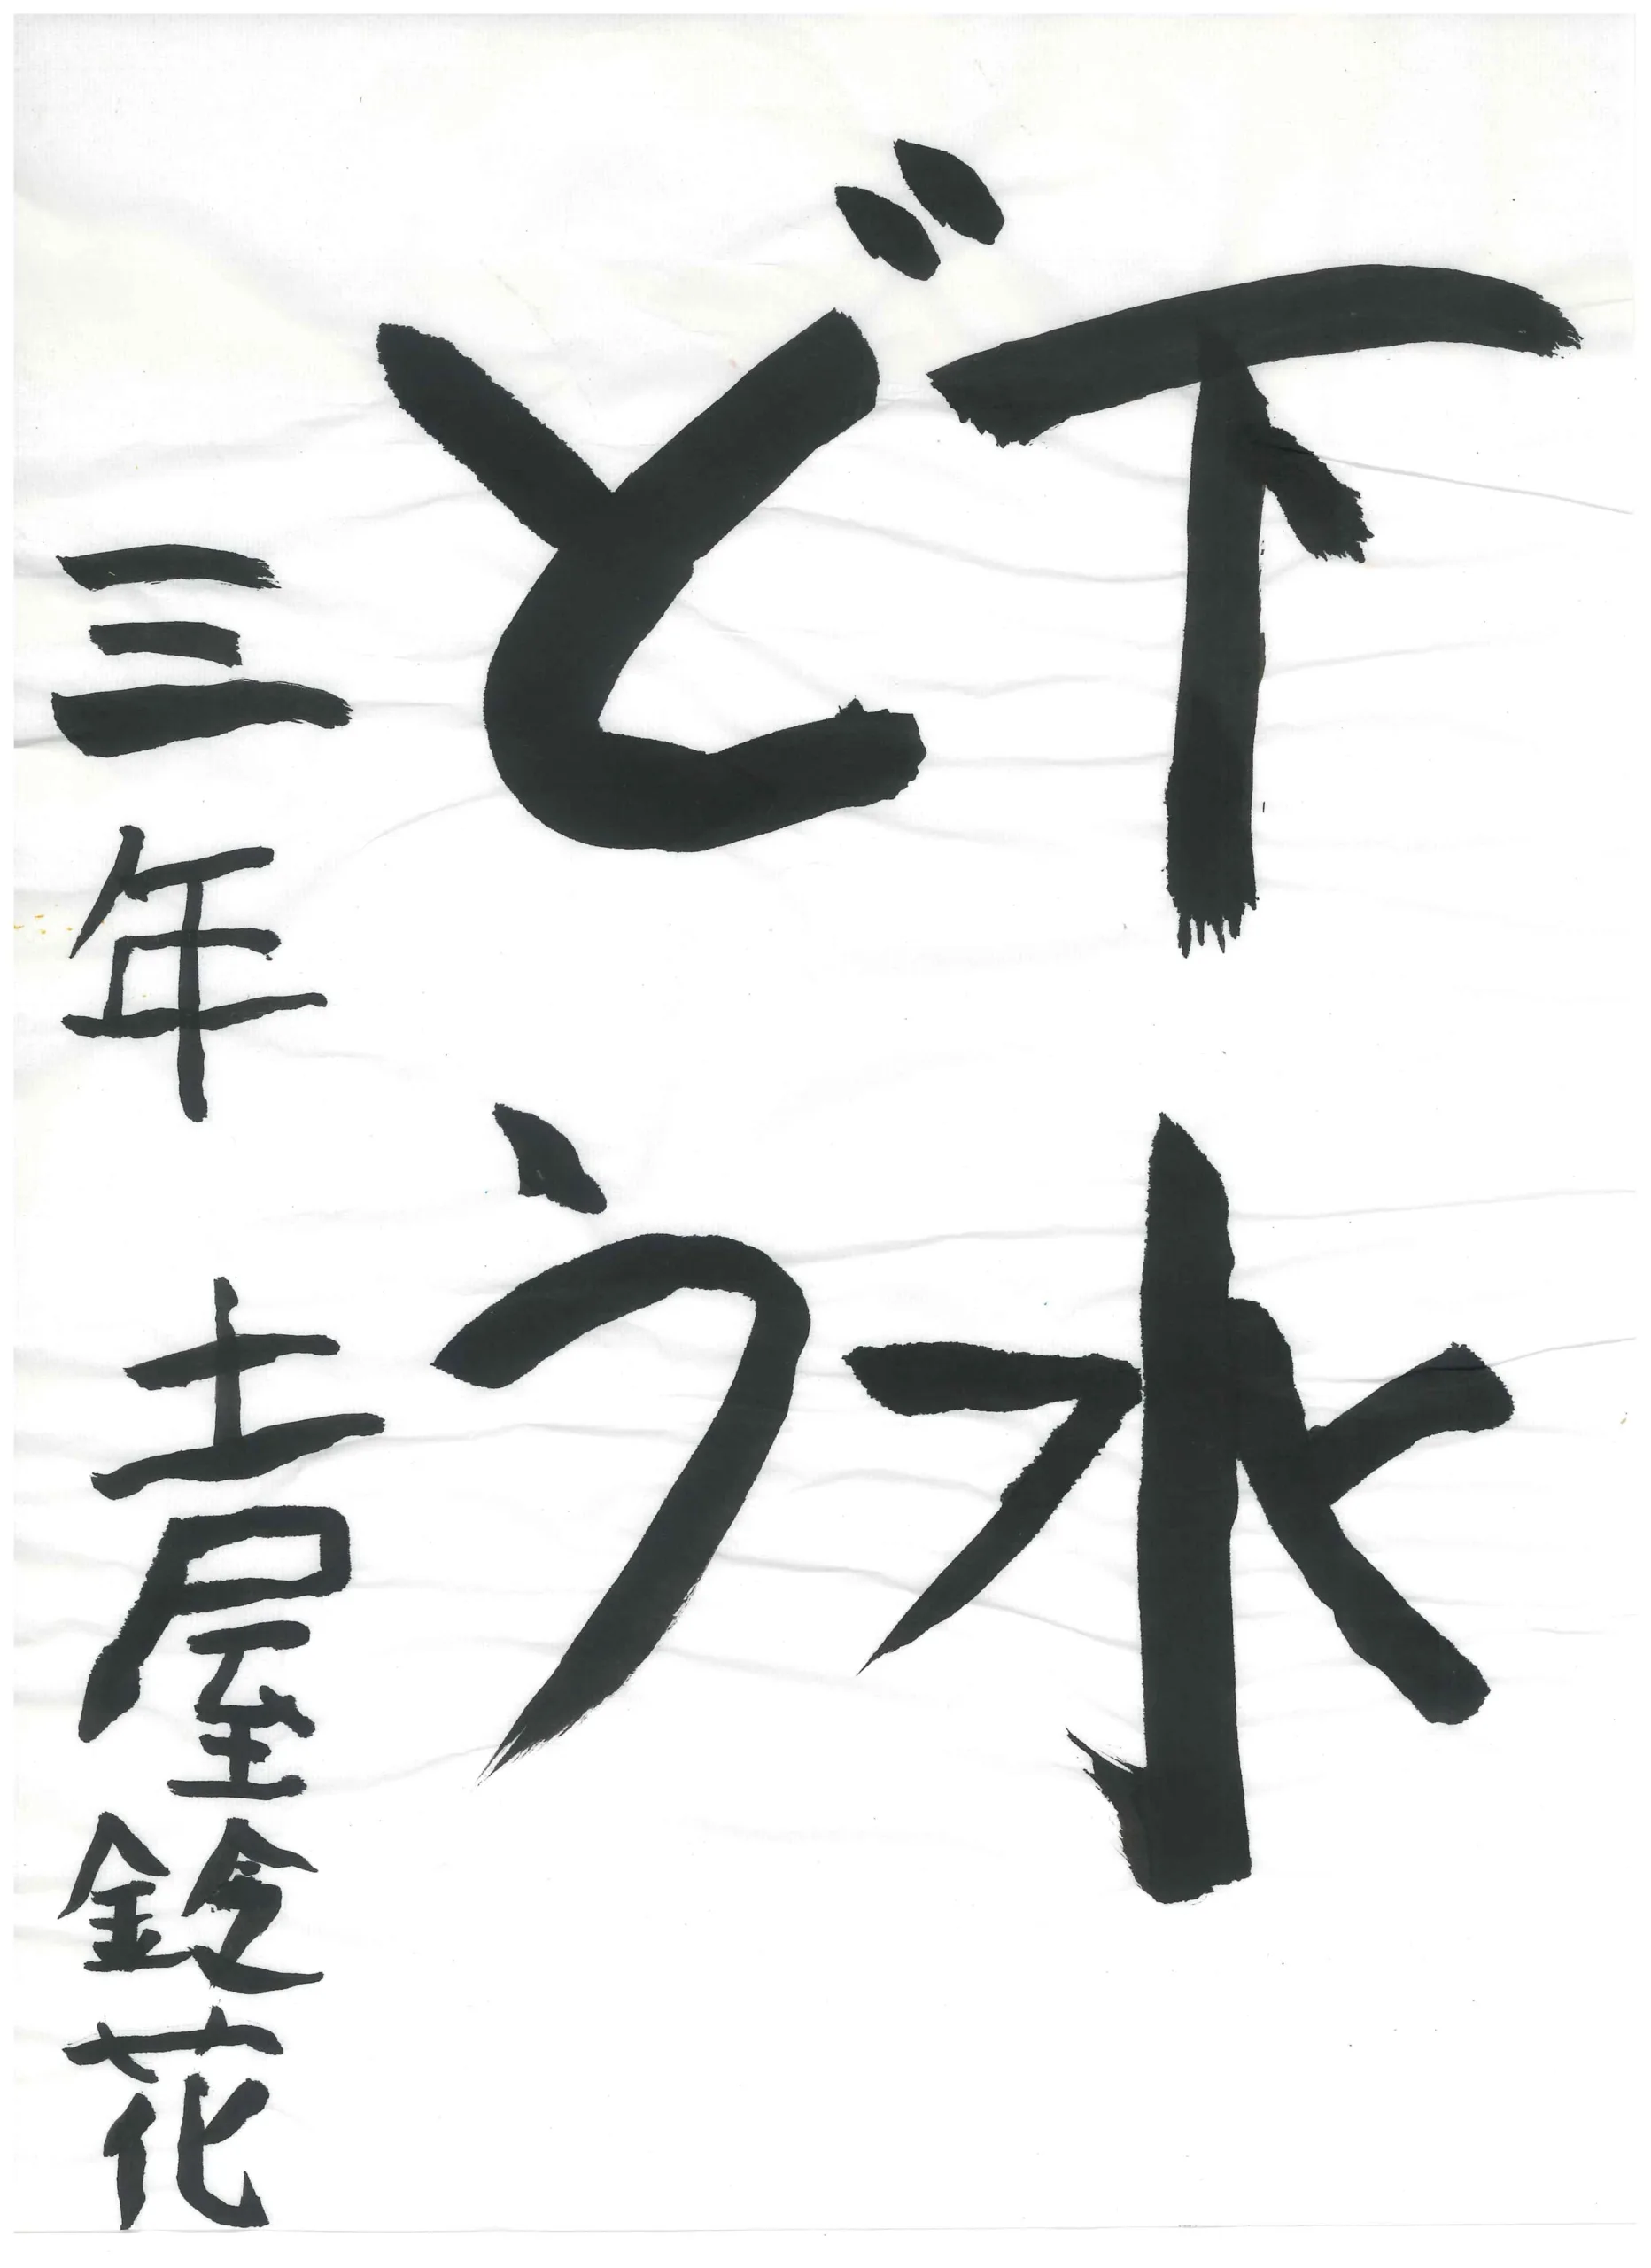 下水
どう
三年 土屋鈴花